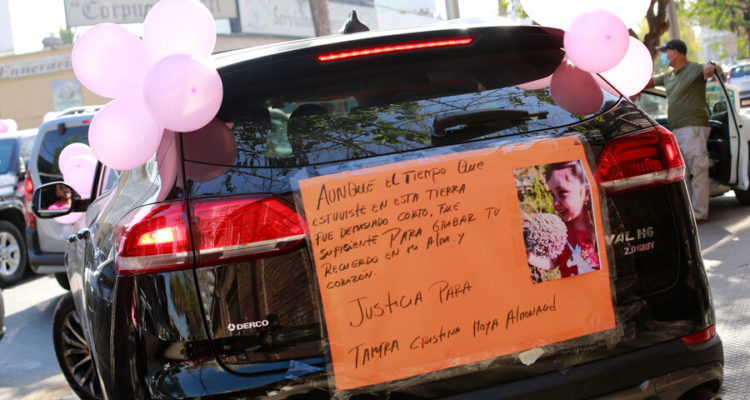 Corpus
Funeraria
AUNQUE EL TIEMPO QUE
ESTUVISTE EN ESTA TIERRA
FUE DEMASIADO CORTO, FUE
SUFICIENTE PARA GRABAR TU
RECUERDO EN MI ALMA Y
CORAZÓN.
JUSTICIA PARA
TAMARA CRISTINA MOYA ALMONACID.
DERCO
HAVAL H6
2.0 GDIT